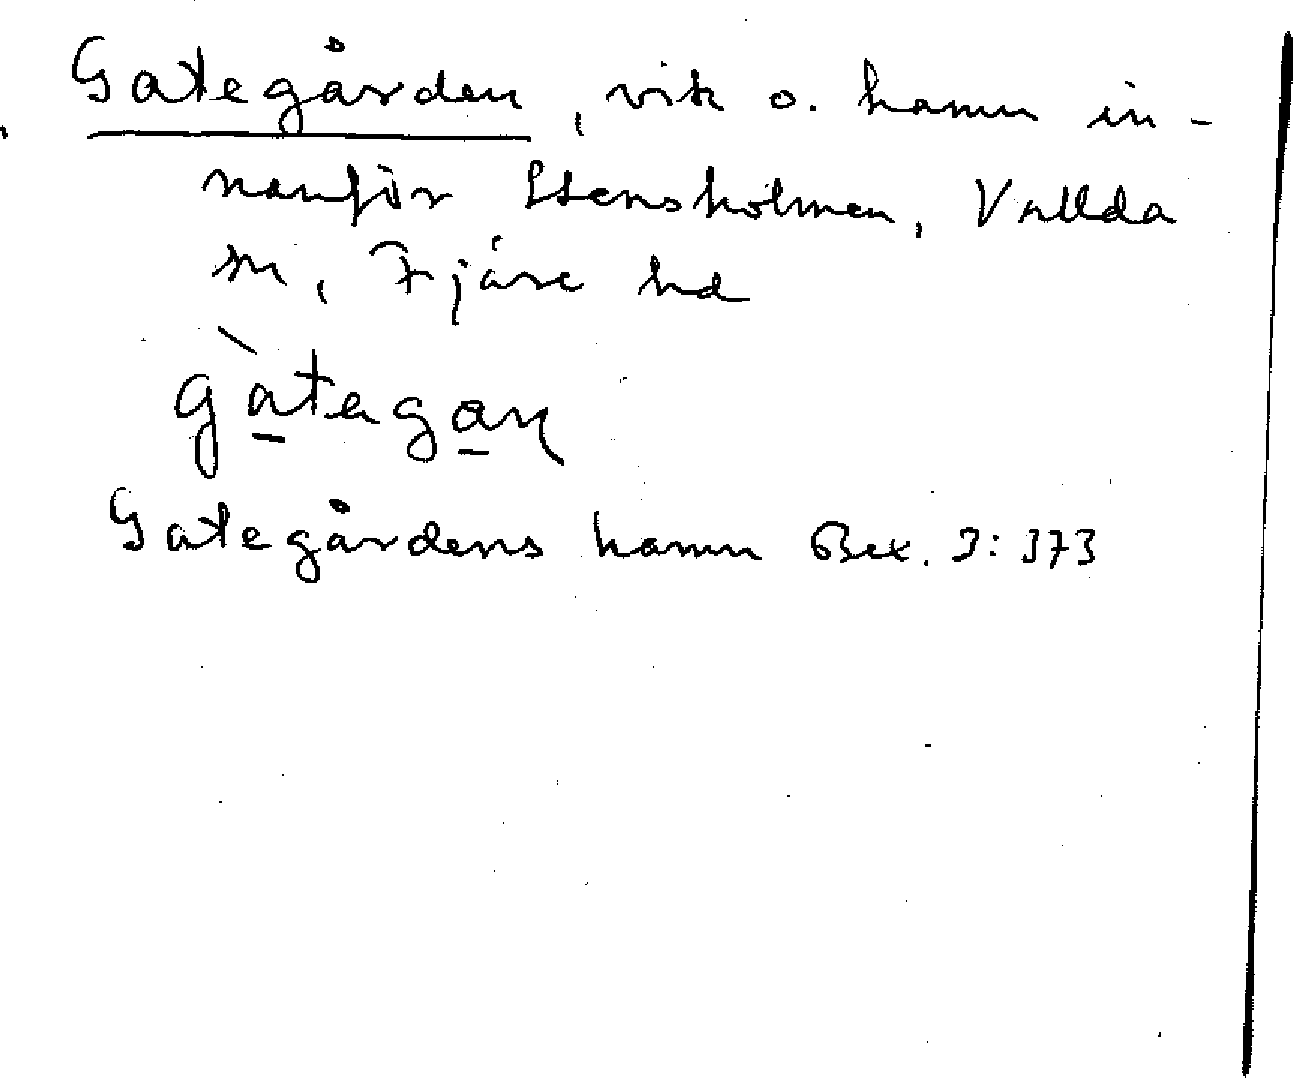 Gategården, vik o. hamn in-
nanför Stensholmen, Vallda
sn, Fjäre hd
gàtagaɳ
Gategårdens hamn Bex. 3:373